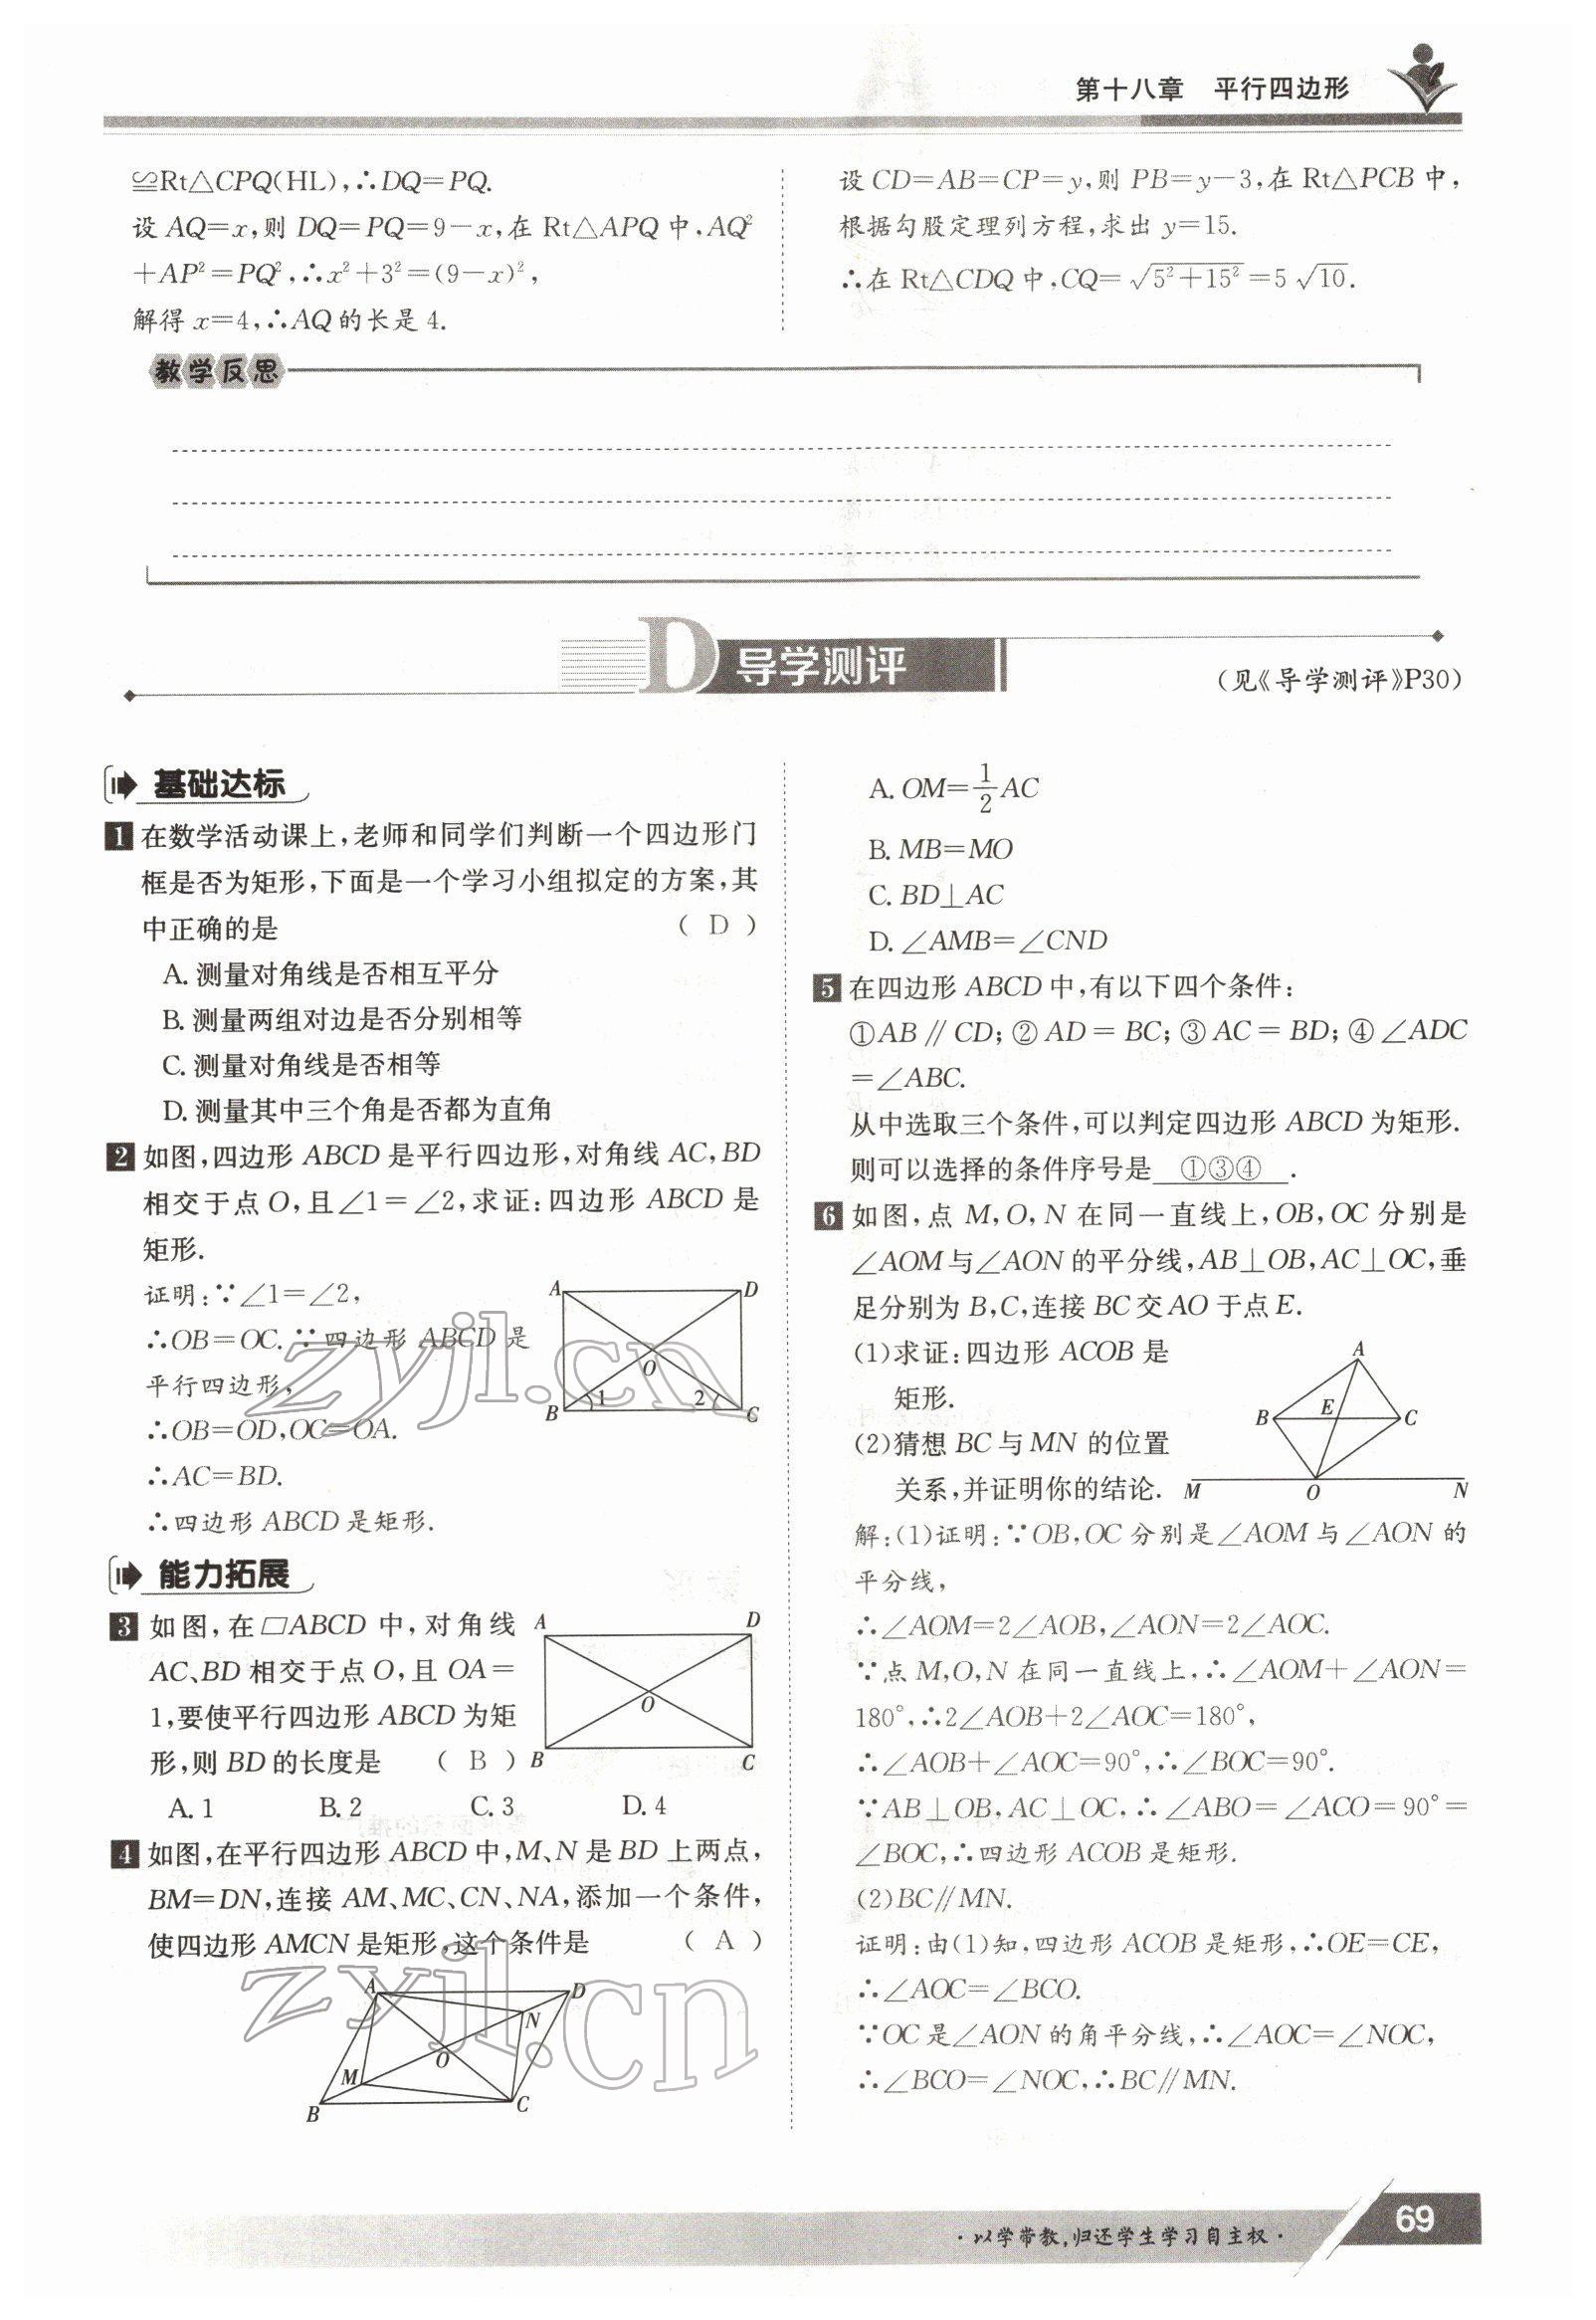 第十八章 平行四边形
≌Rt△CPQ(HL),∴DQ=PQ.
设 AQ=x,则 DQ=PQ=9-x,在 Rt△APQ 中,AQ²
+AP²=PQ²,∴x²+3²=(9-x)²,
解得 x=4,∴AQ 的长是 4.
设 CD=AB=CP=y,则 PB=y-3,在 Rt△PCB 中,
根据勾股定理列方程,求出 y=15.
∴在 Rt△CDQ 中,CQ=√(5²+15²)=5√10.
教学反思
D 导学测评
(见《导学测评》P30)
基础达标
1 在数学活动课上,老师和同学们判断一个四边形门
框是否为矩形,下面是一个学习小组拟定的方案,其
中正确的是 ( D )
A. 测量对角线是否相互平分
B. 测量两组对边是否分别相等
C. 测量对角线是否相等
D. 测量其中三个角是否都为直角
2 如图,四边形 ABCD 是平行四边形,对角线 AC,BD
相交于点 O,且∠1=∠2,求证:四边形 ABCD 是
矩形.
证明:∵∠1=∠2,
∴OB=OC.∵四边形 ABCD 是
平行四边形,
∴OB=OD,OC=OA.
∴AC=BD.
∴四边形 ABCD 是矩形.
A D O B 1 2 C
能力拓展
3 如图,在▱ABCD 中,对角线
AC、BD 相交于点 O,且 OA=
1,要使平行四边形 ABCD 为矩
形,则 BD 的长度是 ( B )
A. 1 B. 2 C. 3 D. 4
A D O B C
4 如图,在平行四边形 ABCD 中,M、N 是 BD 上两点,
BM=DN,连接 AM、MC、CN、NA,添加一个条件,
使四边形 AMCN 是矩形,这个条件是 ( A )
A D N O M B C
A. OM=1/2 AC
B. MB=MO
C. BD⊥AC
D. ∠AMB=∠CND
5 在四边形 ABCD 中,有以下四个条件:
①AB∥CD;②AD=BC;③AC=BD;④∠ADC
=∠ABC.
从中选取三个条件,可以判定四边形 ABCD 为矩形.
则可以选择的条件序号是 ①③④ .
6 如图,点 M,O,N 在同一直线上,OB,OC 分别是
∠AOM与∠AON 的平分线,AB⊥OB,AC⊥OC,垂
足分别为 B,C,连接 BC 交 AO 于点 E.
(1)求证:四边形 ACOB 是
矩形.
(2)猜想 BC 与 MN 的位置
关系,并证明你的结论.
A B E C M O N
解:(1)证明:∵OB,OC 分别是∠AOM 与∠AON 的
平分线,
∴∠AOM=2∠AOB,∠AON=2∠AOC.
∵点 M,O,N 在同一直线上,∴∠AOM+∠AON=
180°,∴2∠AOB+2∠AOC=180°,
∴∠AOB+∠AOC=90°,∴∠BOC=90°.
∵AB⊥OB,AC⊥OC,∴∠ABO=∠ACO=90°=
∠BOC,∴四边形 ACOB 是矩形.
(2)BC∥MN.
证明:由(1)知,四边形 ACOB 是矩形,∴OE=CE,
∴∠AOC=∠BCO.
∵OC 是∠AON 的角平分线,∴∠AOC=∠NOC,
∴∠BCO=∠NOC,∴BC∥MN.
zyjl.cn
zyjl.cn
·以学带教,归还学生学习自主权·
69